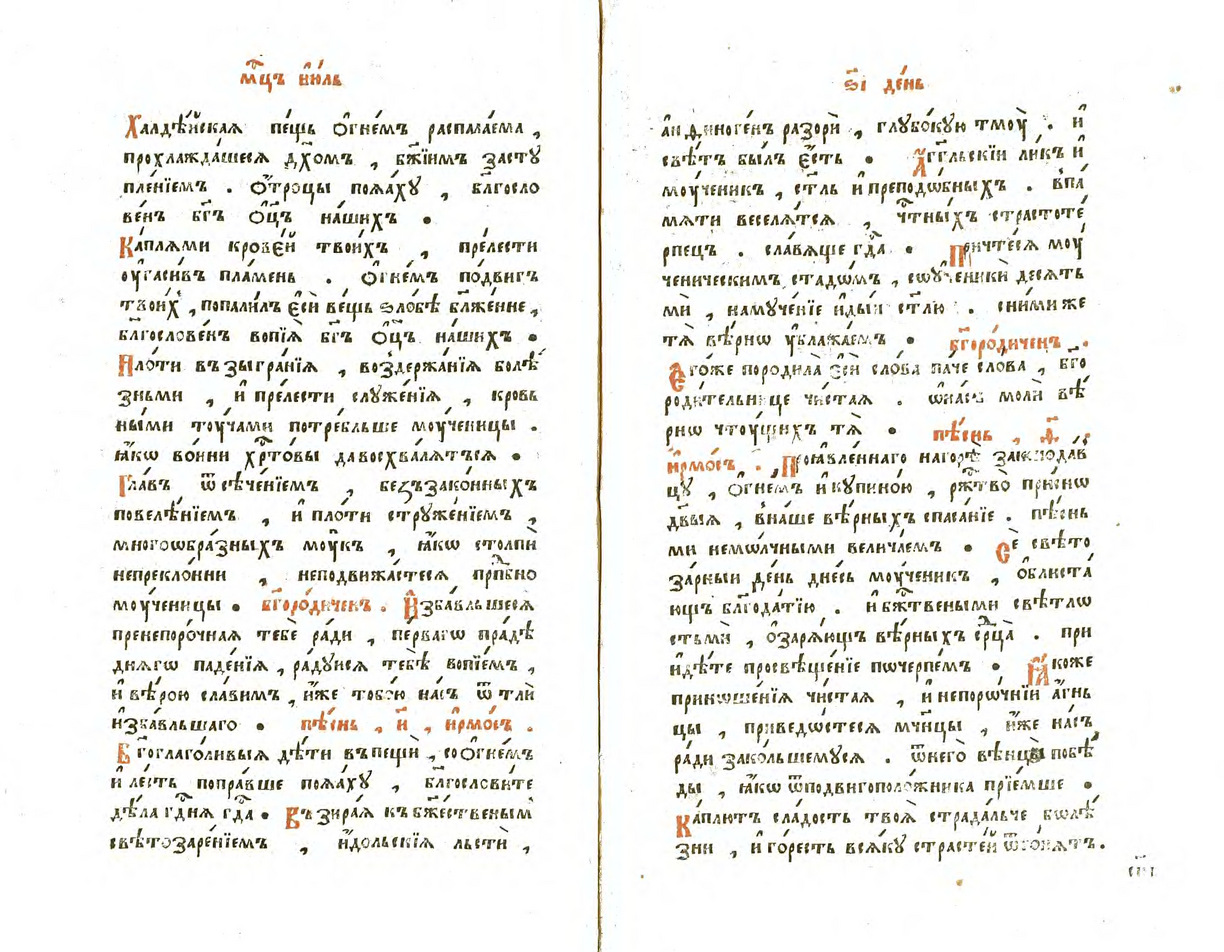 мц҃ъ ию́ль
Халдѣ́йская пе́щь ѻ҆гне́мъ распала́ема ,
прохлажда́шеся дх҃омъ , бж҃іимъ засту
пле́ніемъ . ѻ҆́троцы поꙗ́ху , бл҃госло
ве́нъ бг҃ъ ѻ҆ц҃ъ на́шихъ •
Ка́плями крове́й твои́хъ , пре́лести
оу҆гаси́въ пла́мень . ѻ҆гне́мъ по́двигъ
твои́х , попали́лъ є҆сѝ ве́щь ѕло́бѣ бл҃же́нне ,
благослове́нъ вопїѧ̀ бг҃ъ ѻ҆ц҃ъ на́шихъ •
Пло́ти взыгра́нїѧ , воздержа́нїѧ болѣ́
зньми , и҆ пре́лести служе́нїѧ , кровь
ными тоу́чами потре́бльше моу́ченицы .
ꙗ҆́кѡ во́ини хрⷭ҇то́вы да восхвалѧ́тъсѧ •
Гла́въ ѿсѣче́нїемъ , беззако́нныхъ
повелѣ́нїемъ , и҆ пло́ти струже́нїемъ ,
многоѡбра́зныхъ моу́къ , ꙗ҆́кѡ столпѝ
непрекло́нни , неподви́жастесѧ прпⷣбно
моу́ченицы • бг҃оро́диченъ . И҆збавльшесѧ
пренепоро́чная тебѐ ра́ди , пе́рвагѡ пра́дѣ
днѧгѡ паде́нїѧ , ра́дуисѧ тебѣ̀ вопїе́мъ ,
и҆ вѣ́рою сла́вимъ , и҆́же тобо́ю на́съ ѿ тлѝ
и҆зба́вльшаго • пѣ́снь , и҃ , і҆рмо́съ .
Бг҃оглаго́ливыѧ дѣ́ти въ пещѝ , со ѻ҆гне́мъ
и҆ ле́сть попра́вше поꙗ́ху , благослови́те
дѣ́ла гдⷭ҇нѧ гдⷭ҇а • Въ зира́ѧ къ бж҃е́ственымъ
свѣтозаре́нїемъ , и҆́дольскїѧ льстѝ ,
ѕ҃і де́нь
а҆нѳиноге́нъ разорѝ , глубо́кую тмоу̀ . и҆
свѣ́тъ бы́лъ є҆́сть • А҆́гг҃льскїи ли́къ и҆
моу́ченикъ , ст҃ль и҆ преподо́бныхъ . в па́
мѧти веселѧ́тсѧ , чⷭ҇тны́хъ страстоте́
рпецъ . сла́вѧще гдⷭ҇а • Причте́сѧ моу́
ченическимъ стадѡ́мъ , соу҆ченикѝ де́сѧть
мѝ , на муче́нїе и҆ды́и ст҃лю . с ни́ми же
тѧ̀ вѣ́рнѡ ублажа́емъ • бг҃оро́диченъ .
Є҆го́же породи́ла є҆сѝ сло́ва па́че сло́ва , бг҃о
роди́тельнице чи́стаѧ . ѡ҆ на́съ молѝ вѣ́
рнѡ чтоу́щихъ тѧ̀ • пѣ́снь , ѳ҃ .
і҆рмо́съ . Проꙗвле́ннаго на горѣ̀ законода́в
цу , ѻ҆гне́мъ и҆ купино́ю , ржⷭ҇тво̀ при́снѡ
дв҃ыѧ , в на́ше вѣ́рныхъ спасе́нїе . пѣ́снь
ми немѡ́лчными велича́емъ • Сѐ свѣто
за́рныи де́нь дне́сь моу́ченикъ , ѻ҆блиста́
ющъ благода́тїю . и҆ бжⷭ҇твеными свѣ́тлѡ
стьмѝ , ѻ҆зарѧ́ющъ вѣ́рныхъ срⷣца̀ . прї
и҆дѣ́те просвѣще́нїе пѡче́рпемъ • Ꙗ҆́коже
принѡше́нїѧ чи́стаѧ , и҆ непорѡ́чнїи а҆́гнь
цы , приведо́стесѧ мч҃ницы , и҆́же на́съ
ра́ди зако́льшемусѧ . ѿ него̀ вѣнца̀ побѣ́
ды , ꙗ҆́кѡ ѿ подвигополо́жника прїе́мше •
Ка́плютъ сла́дость твоѧ̀ страда́льче бѡлѣ́
зни , и҆ го́ресть всѧ́ку страсте́й ѿго́нѧтъ .